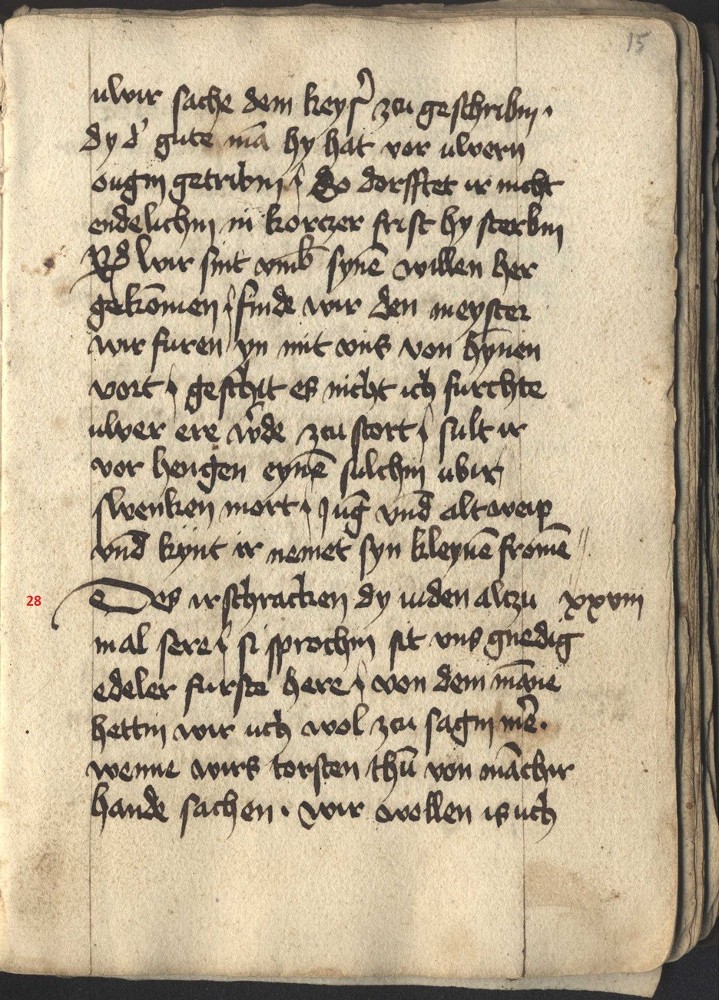 15
uwir sache dem keyser zcu geschribin.
dy d' gute mā hy hat vor uwern
ougin getribin / So dorfftet ir nicht
endelichin in korczer frist hy sterbin
wir sint vmb synē willen her
gekomen / finde wir den meyster
wir furen yn mit vns von hynnen
vort / geschit es nicht ich furchte
uwer ere w'de zcu stort / sult ir
vor hengen eynē sulchin ubir
swenken mort / Jūg vnd alt weip
vnd kynt ir nemet syn kleynē fromē
28 Des irschracken dy iuden alczu xxviii
mal sere / si sprochin sit vns gnedig
edeler furste here / von dem māne
hettin wir uch wol zcu sagin mē.
wenne wirs torsten thū von māchir
hande sachen. wir wollen is uch